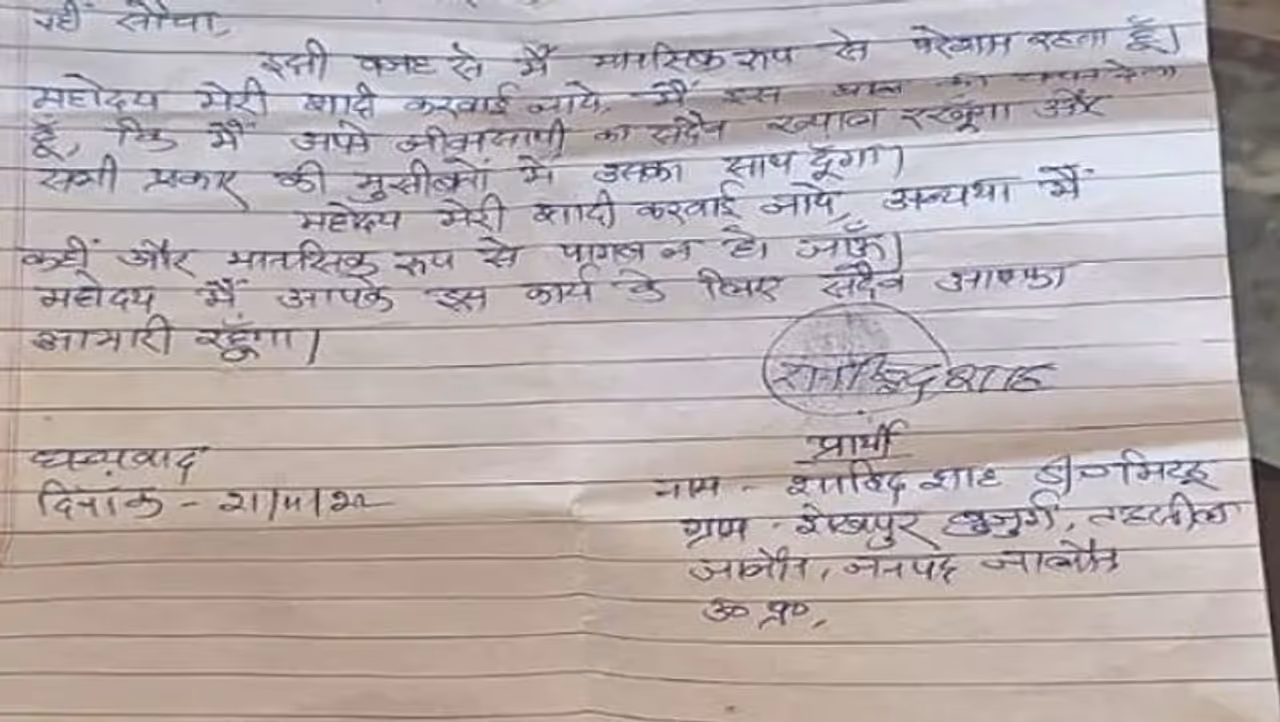 नहीं सोचा,
इसी वजह से मैं मानसिक रूप से परेशान रहता हूँ।
महोदय मेरी शादी करवाई जाये, मैं इस बात का वचन देता
हूँ, कि मैं अपने जीवनसाथी का सदैव ख्याल रखूँगा और
सभी प्रकार की मुसीबतों में उसका साथ दूँगा।
महोदय मेरी शादी करवाई जाये, अन्यथा मैं
कहीं और मानसिक रूप से पागल न हो जाऊँ।
महोदय मैं आपके इस कार्य के लिए सदैव आपका
आभारी रहूँगा।
प्रार्थी
धन्यवाद
नाम - शाह
दिनांक -
ग्राम - शेखपुर बुजुर्ग, तहसील
जालौन, जनपद जालौन
उ० प्र०,